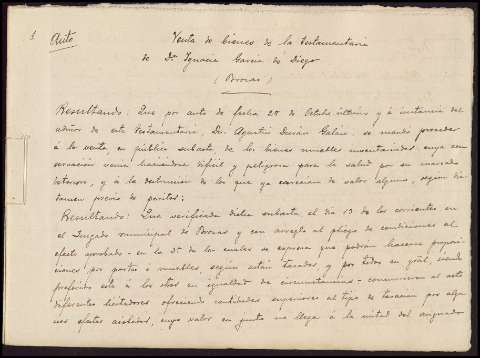 1
Auto
Venta de bienes de la testamentaria
de Dn. Ignacio García de Diego
(Porras)
Resultando: Que por auto de fecha 28 de Octubre último y á instancia del
de esta testamentaria, Dn. Agustín Durán, se mandó proceder
á la venta, en pública subasta, de los bienes muebles inventariados cuya con-
servación venía haciéndose difícil y peligrosa para la salud por su marcado
deterioro, y á la destrucción de los que ya carecían de valor alguno, según dic-
tamen previo de peritos;
Resultando: Que verificada dicha subasta el día 13 de los corrientes en
el Juzgado municipal de Porras y con arreglo al pliego de condiciones al
efecto aprobado - en la de las cuales se expresa que podrían hacerse proposi-
ciones por partes ó muebles, según están tasados y por todos en gral, siendo
preferido este á los otros en igualdad de circunstancias - concurrieron al acto
diferentes licitadores ofreciendo cantidades superiores al tipo de tasación por algu-
nos efectos aislados, cuyo valor en junto no llega á la mitad del asignado